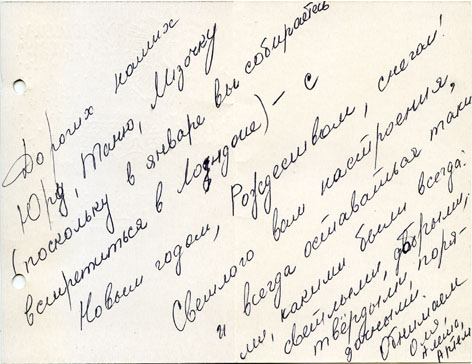 Дорогих наших
Юру, Таню, Мизочку
(поскольку в январе вы собираетесь
встретиться в Лондоне) - с
Новым годом, Рождеством, снегом!
Светлого вам настроения,
и всегда оставаться таки-
ми, какими были всегда:
светлыми, добрыми,
твёрдыми, поря-
дочными.
Обнимаем
Оля,
Алёна,
Артём